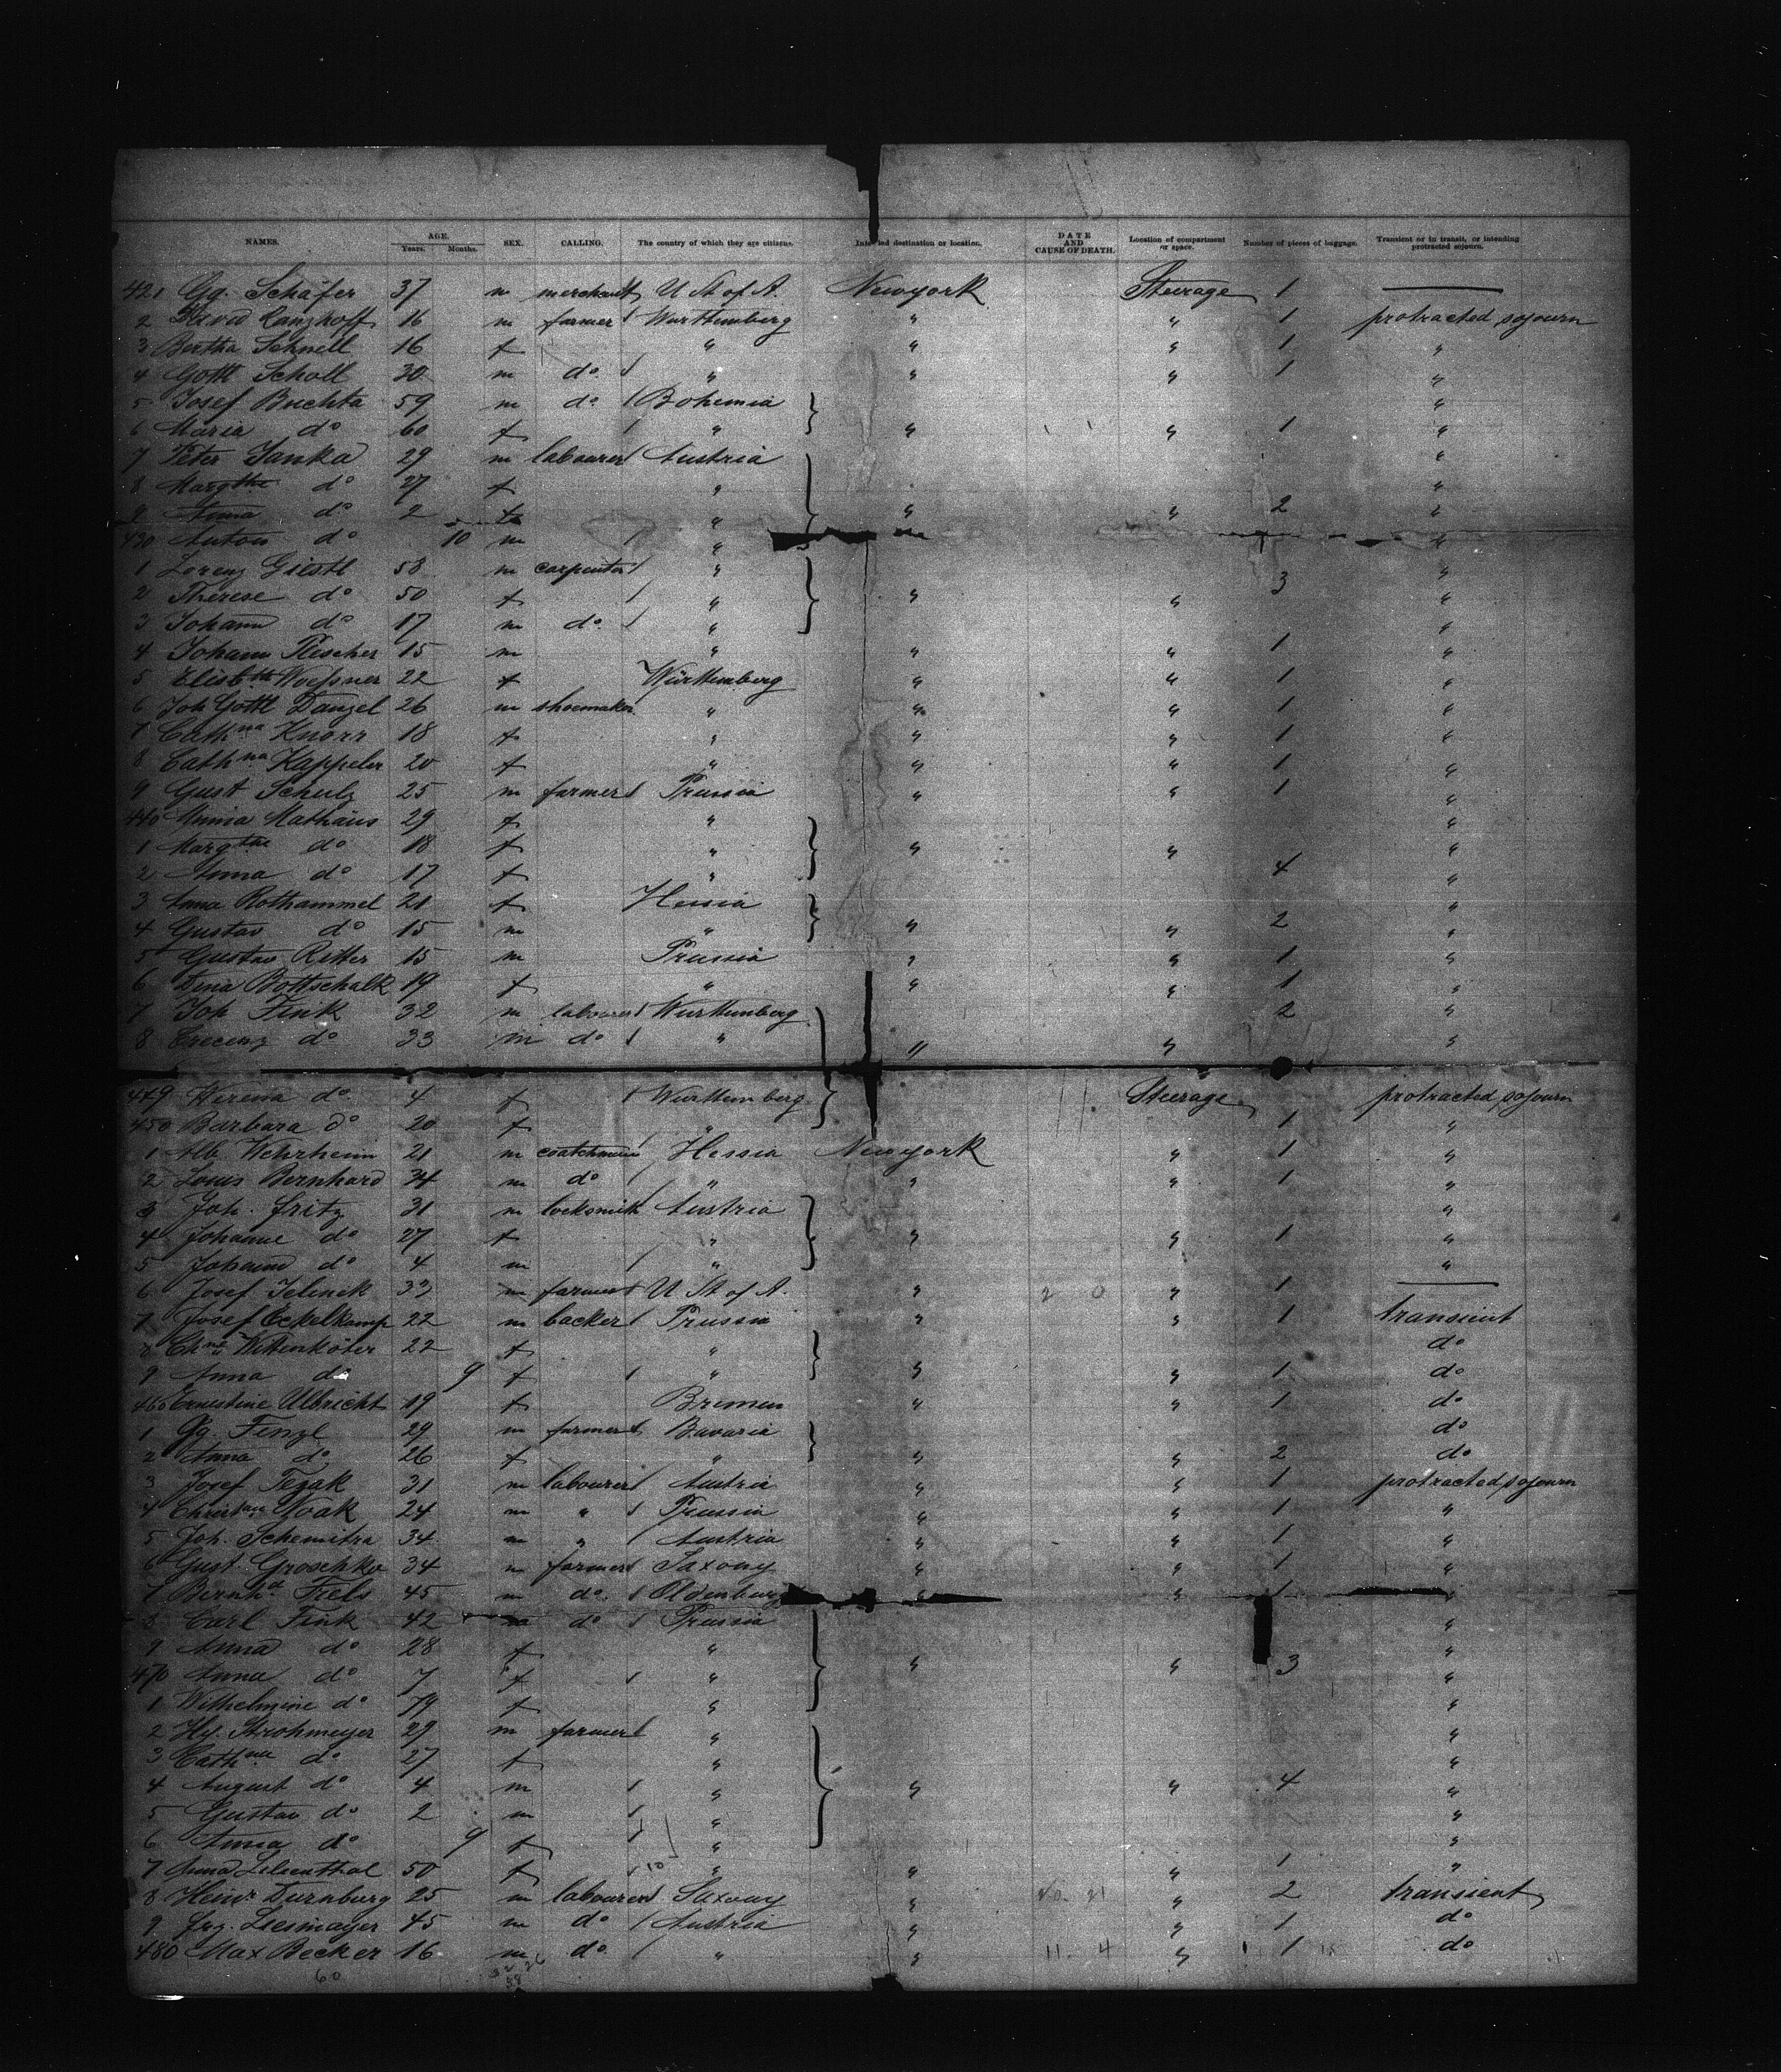 NAMES. AGE. Years. Months. SEX. CALLING. The country of which they are citizens. Intended destination or location. DATE AND CAUSE OF DEATH. Location of compartment or space. Number of pieces of baggage. Transient or in transit, or intending protracted sojourn.
421 Gg. Schäfer 37 m merchant U St of A. Newyork Steerage 1 —
2 David Ranzhoff 16 m farmer Württemberg " " 1 protracted sojourn
3 Bertha Schnell 16 f " " " 1 "
4 Gottl Scholl 30 m do " " " 1 "
5 Josef Buchta 59 m do Bohemia "
6 Maria do 60 f " " " 1 "
7 Peter Janka 29 m labourer Austria "
8 Margthe do 27 f " "
9 Anna do 2 f " " " 2 "
430 Anton do 10 m " "
1 Lorenz Giestl 58 m carpenter " 3 "
2 Therese do 50 f " " " "
3 Johann do 17 m do " "
4 Johann Fleischer 15 m " " " 1 "
5 Elisbth Woessner 22 f Württemberg " " 1 "
6 Joh Gottl Danzel 26 m shoemaker " " " 1 "
7 Cathna Knorr 18 f " " " 1 "
8 Cathna Kappeler 20 f " " " 1 "
9 Gust Schulz 25 m farmer Prussia " " 1 "
440 Minia Mathäus 29 f " "
1 Margthe do 18 f " " " "
2 Anna do 17 f " 4 "
3 Anna Rothammel 21 f Hessia "
4 Gustav do 15 m " " " 2 "
5 Gustav Ritter 15 m Prussia " " 1 "
6 Dina Bottschalk 19 f " " " 1 "
7 Joh Fink 32 m labourer Württemberg 2 "
8 Crecenz do 33 m do " " " "
449 Verena do 4 f Württemberg Steerage protracted sojourn
450 Barbara do 20 f " 1 "
1 Alb. Wehrheim 21 m coatchman Hessia Newyork " 1 "
2 Louis Bernhard 34 m do " " " 1 "
3 Joh. Fritz 31 m locksmith Austria "
4 Johanne do 27 f " " " 1 "
5 Johann do 4 m " "
6 Josef Jelinek 33 m farmer U St of A. " " 1 —
7 Josef Eckelkamp 22 m backer Prussia " " 1 transient
8 Chne Wittenköter 22 f " do
9 Anna do 9 f " " " 1 do
460 Ernestine Ulbricht 19 f Bremen " " 1 do
1 Gg. Fenzl 29 m farmer Bavaria do
2 Anna do 26 f " " " 2 do
3 Josef Tezak 31 m labourer Austria " " 1 protracted sojourn
4 Christian Noak 24 m " Prussia " " 1 "
5 Joh. Schemitra 34 m " Austria " " 1 "
6 Gust. Groschko 34 m farmer Saxony " " 1 "
7 Bernhd Frels 45 m do Oldenburg " " 1 "
8 Carl Fink 42 m do Prussia "
9 Anna do 28 f " " " 3 "
470 Anna do 7 f " "
1 Wilhelmine do 79 f " "
2 Hy. Strohmeyer 29 m farmer " "
3 Cathna do 27 f " "
4 August do 4 m " " " 4 "
5 Gustav do 2 m " "
6 Anna do 9 f " "
7 Anna Lilienthal 50 f " " " 1 "
8 Heinr Durnburg 25 m labourer Saxony " " 2 transient
9 Liesmayer 45 m do Austria " " 1 do
480 Max Becker 16 m do " " " 1 do
60